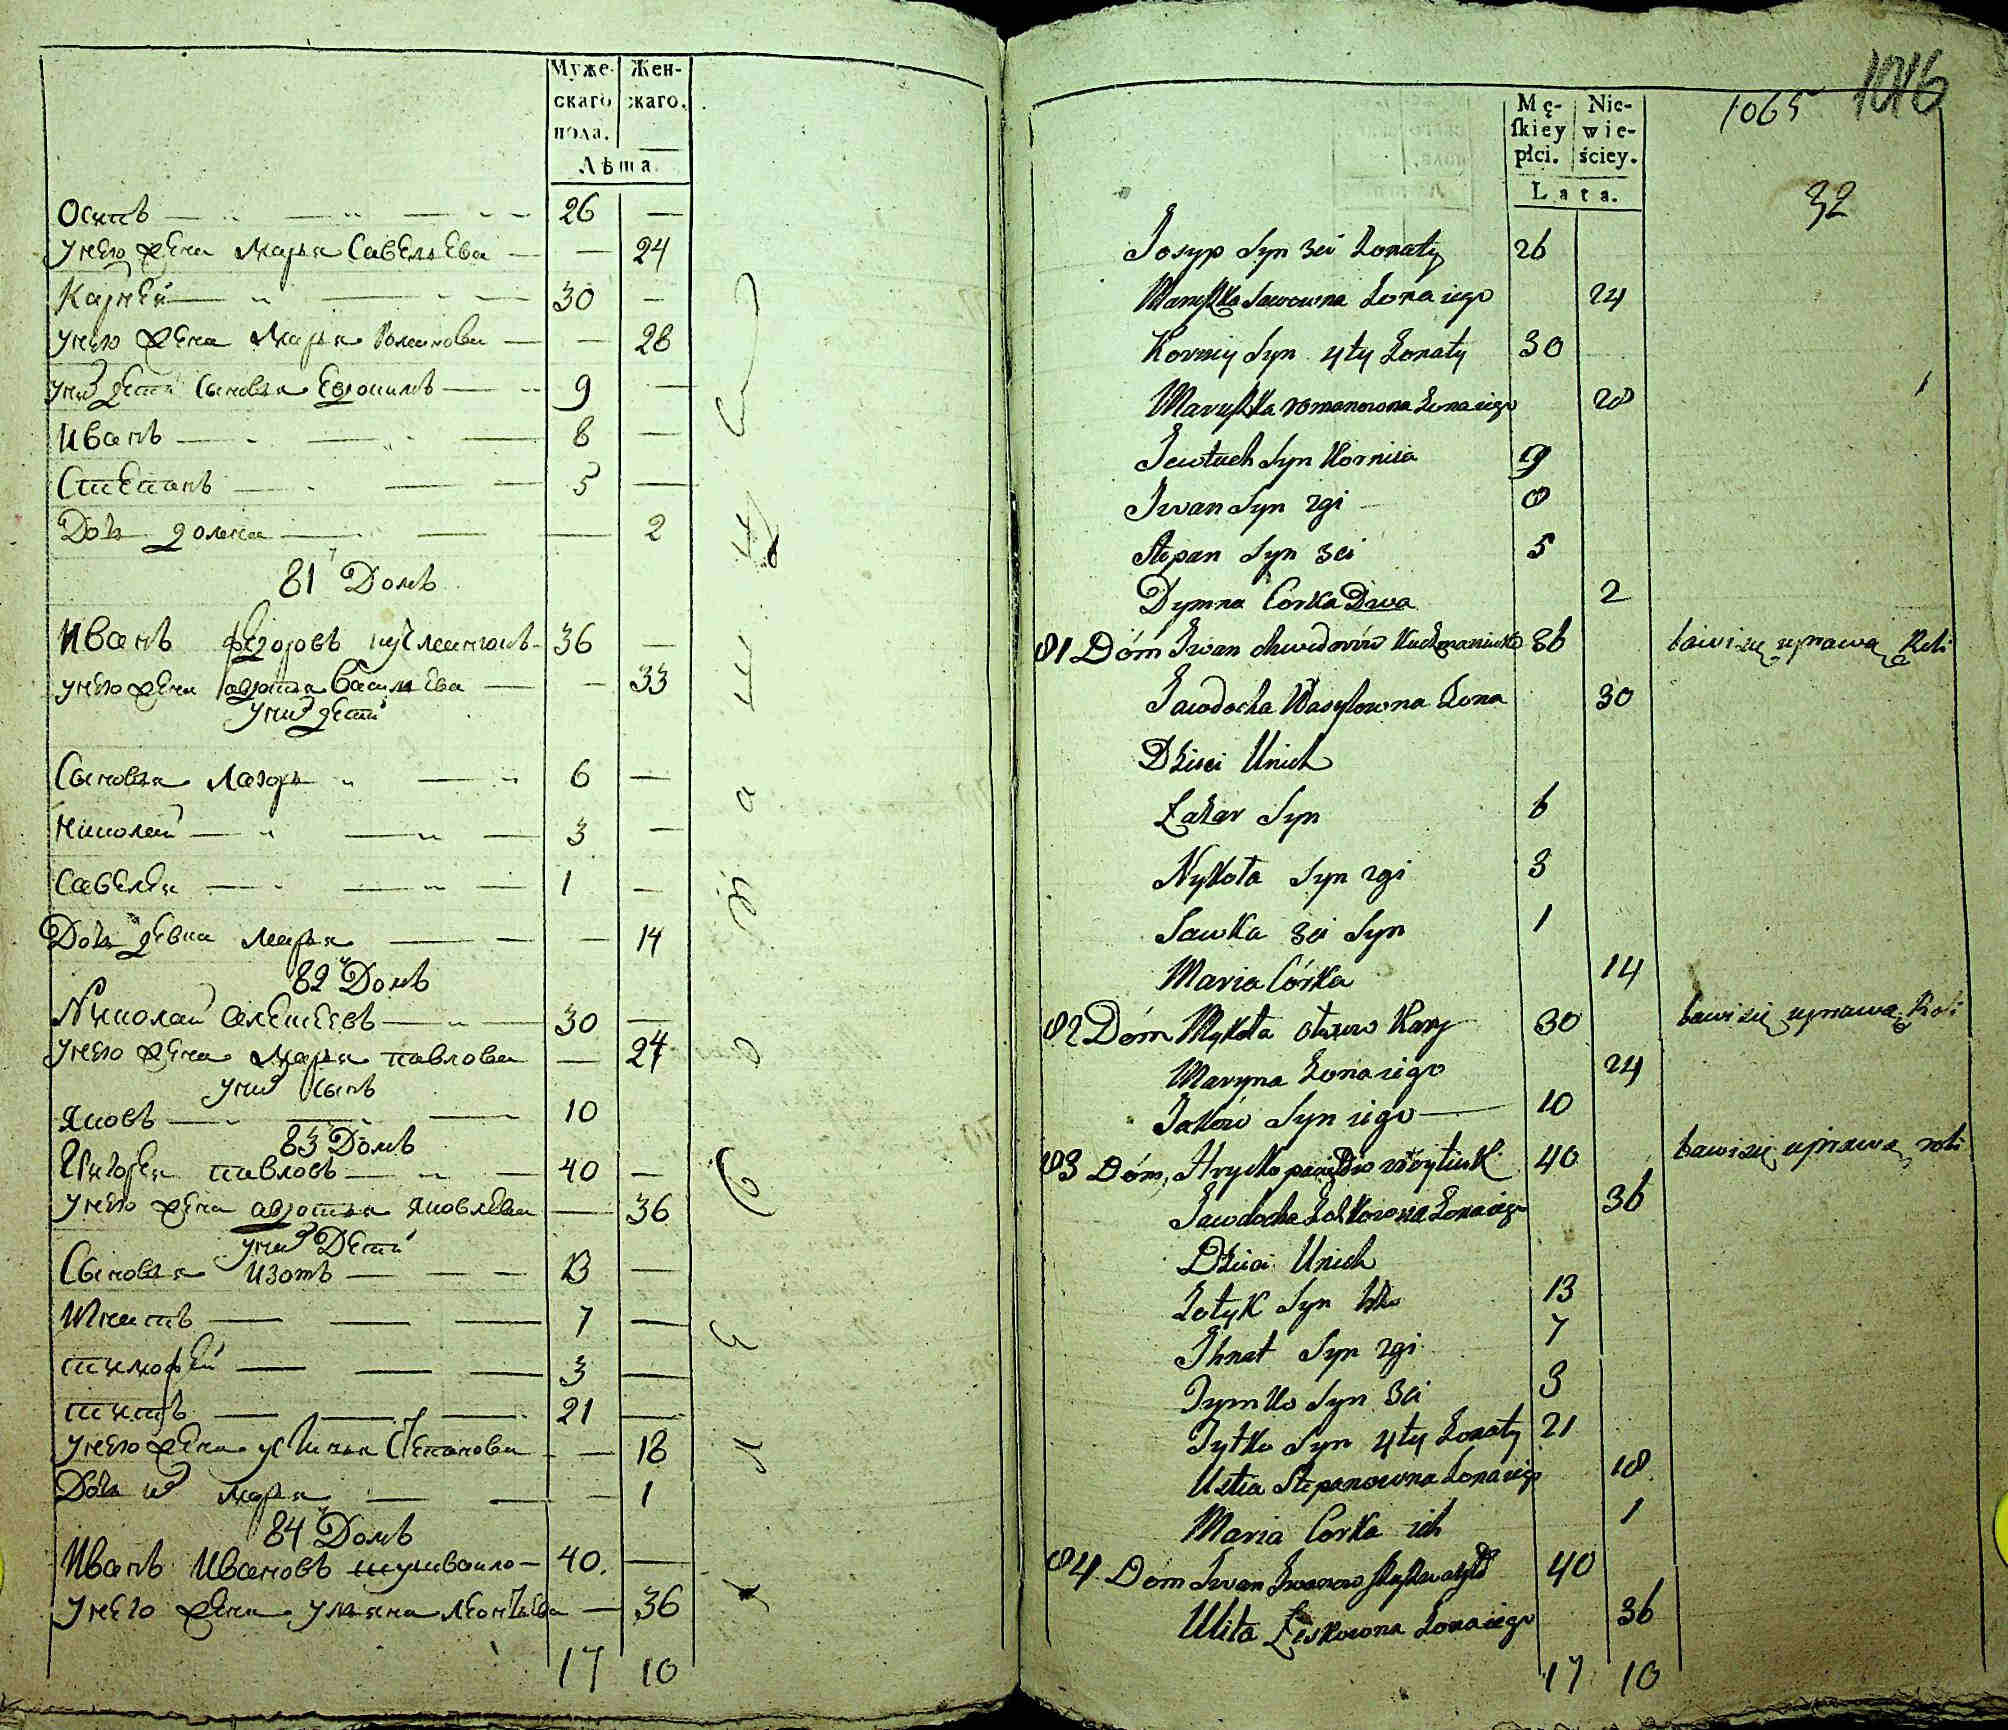 Муже- Жен-
скаго скаго.
пола.
Лѣта.
Осипъ 26 —
унего жена Марья Савельева — 24
Карней 30 —
унего жена Марья Романова — 28
уних дети Сыновья Евдокимъ 9 —
Иванъ 8 —
Степанъ 5 —
Дочь домна — 2
81 Домъ
Иванъ Федоровъ 36 —
унего жена авдотья Васильева — 33
уних дети
Сыновья Лазорь 6 —
Николай 3 —
Савелей 1 —
Дочь девка марья — 14
82 Домъ
Николай Алексеевъ 30 —
унего жена Марья павлова — 24
уних Сынъ
Яковъ 10
83 Домъ
Григорей павловъ 40 —
унего жена авдотья Яковлева — 36
уних Дети
Сыновья Изотъ 13 —
Игнатъ 7 —
тимофей 3 —
титъ 21 —
унего жена устинья Степанова — 18
Дочь их марья — 1
84 Домъ
Иванъ Ивановъ 40. —
унего жена ульяна леонтьева — 36
17 10
1065 1016
32
Mę- Nie-
ſkiey wie-
płci. ściey.
Lata.
Josyp Syn 3ci Żonaty 26
Maryſka Sawowna Żona iego 24
Korniy Syn 4ty Żonaty 30
Maryſka romanowna Żona iego 28
Jewtuch Syn Kornieia 9
Iwan Syn 2gi 8
Stepan Syn 3ci 5
Dymna Corka Dwa 2
81 Dóm Iwan chwedorów 36 bawi się uprawą Roli
Jawdocha Wasylowna Żona 30
Dzieci Unich
Łazar Syn 6
Nykoła Syn 2gi 3
Sawka 3ci Syn 1
Maria Córka 14
82 Dóm Mykoła 30 bawi się uprawą Roli
Maryna Żona iego 24
Jaków Syn iego 10
83 Dóm, Hryćko 40 bawi się uprawą roli
Jawdocha Żona iego 36
Dzieci Unich
Syn 13
Ihnat Syn 2gi 7
Tymko Syn 3ci 3
Tytko Syn 4ty Żonaty 21
Ustia Stepanowna Żona iego 18
Maria Corka ich 1
84 Dóm Iwan Iwanow 40
Ulita Żona iego 36
17 10